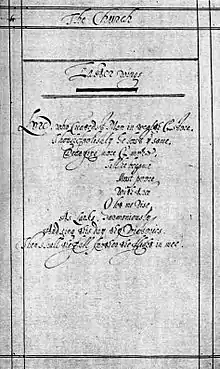 The Church
Easter wings
Lord, who createdst Man in wealth & store,
Though foolishly he lost y same,
Decaying more & more,
Till he became
Most poore
With thee
O let me rise
As Larks, harmoniously,
And sing this day thy Victories.
Then shall the fall further the flight in mee.